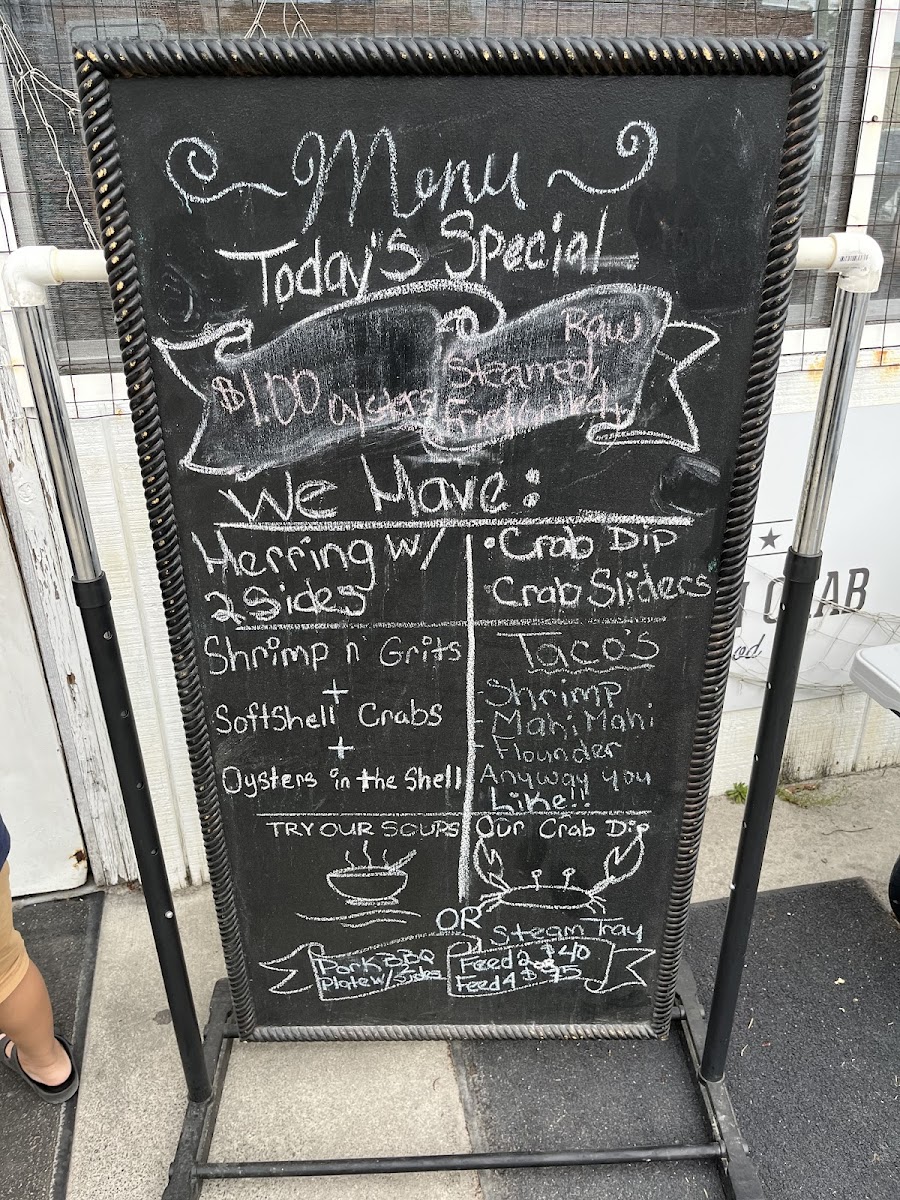 Menu
Today's Special
$1.00 Oysters
Raw
Steamed
We Have:
Herring w/
2 Sides
Shrimp n Grits
+
SoftShell Crabs
+
Oysters in the Shell
• Crab Dip
Crab Sliders
Taco's
- Shrimp
- Mahi Mahi
- Flounder
Anyway you
Like!!
TRY OUR SOUPS
Our Crab Dip
OR
Steam Tray
Pork BBQ
Plate w/ Sides
Feed 2 $40
Feed 4 $
CRAB